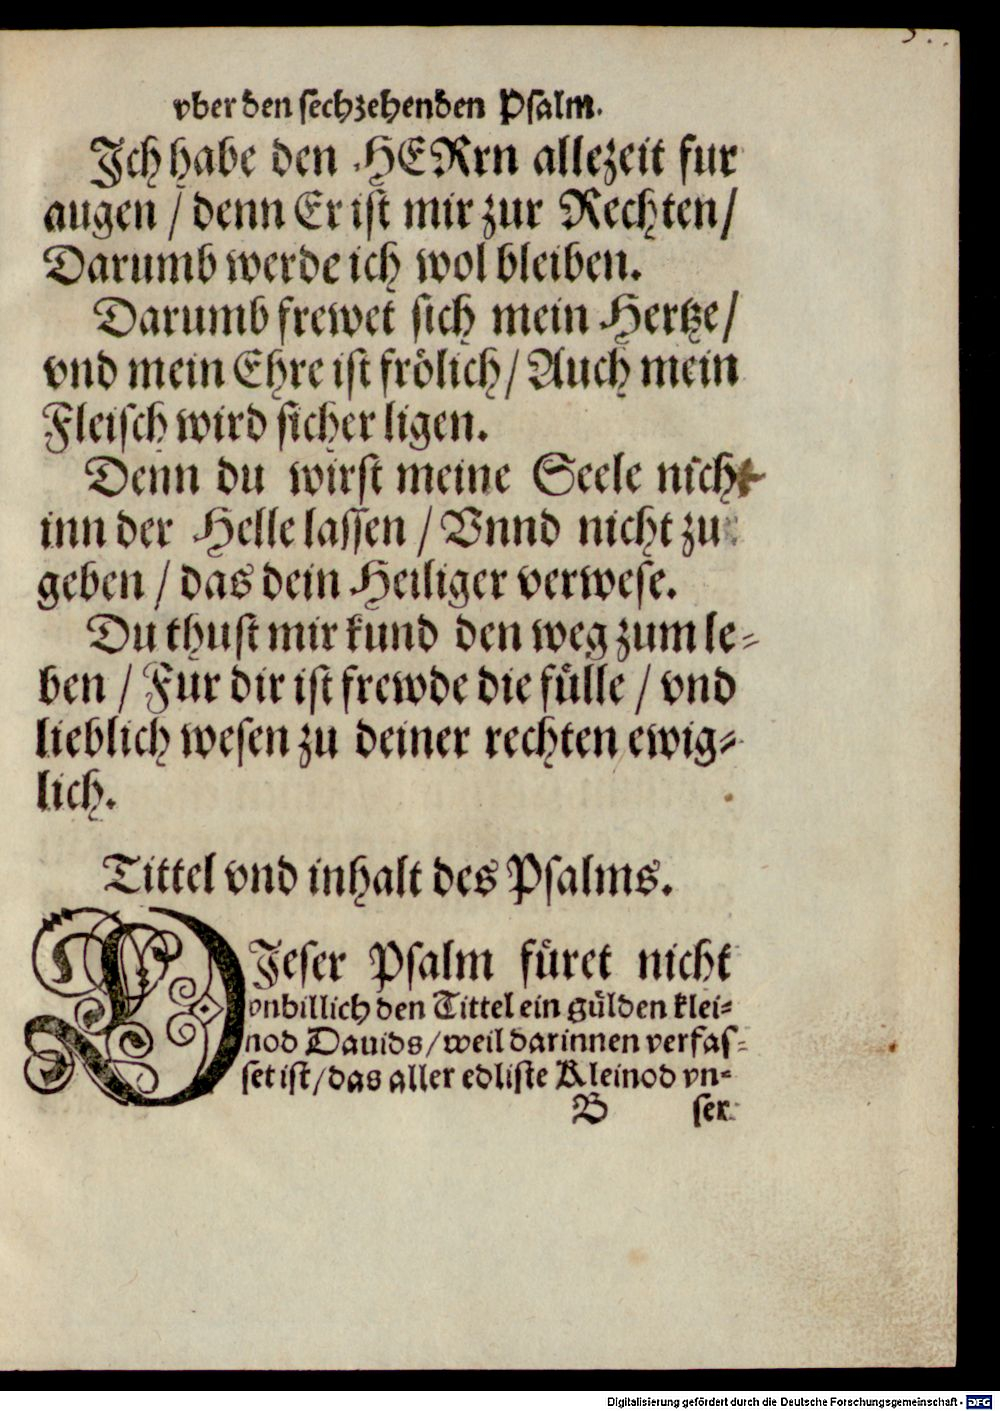 vber den sechzehenden Psalm.
Ich habe den HERrn allezeit fur
augen / denn Er ist mir zur Rechten/
Darumb werde ich wol bleiben.
Darumb frewet sich mein Hertze/
vnd mein Ehre ist frölich/ Auch mein
Fleisch wird sicher ligen.
Denn du wirst meine Seele nicht
inn der Helle lassen / Vnnd nicht zu
geben / das dein Heiliger verwese.
Du thust mir kund den weg zum le-
ben / Fur dir ist frewde die fülle / vnd
lieblich wesen zu deiner rechten ewig-
lich.
Tittel vnd inhalt des Psalms.
DJeser Psalm füret nicht
vnbillich den Tittel ein gülden klei-
nod Dauids/ weil darinnen verfas-
set ist/ das aller edliste Kleinod vn-
B ser
Digitalisierung gefördert durch die Deutsche Forschungsgemeinschaft - DFG